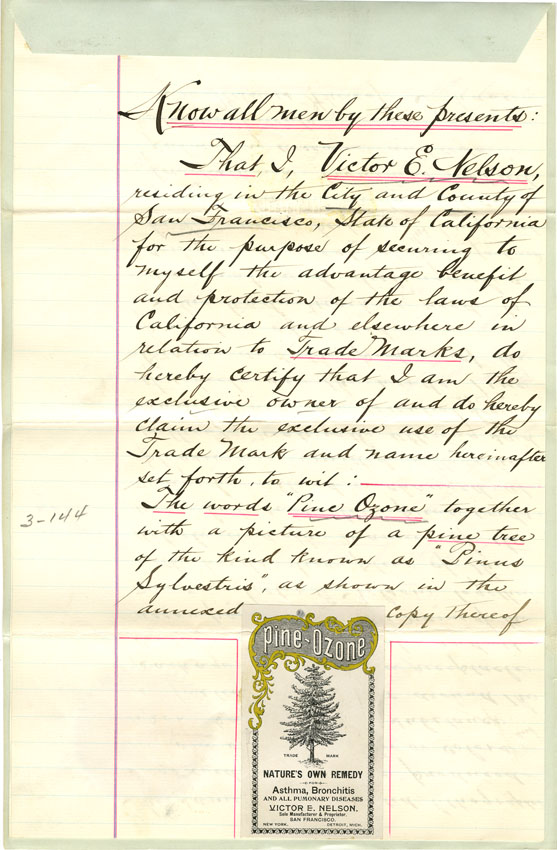 Know all men by these presents:
That, I, Victor E. Nelson,
residing in the City and County of
San Francisco, State of California
for the purpose of securing to
myself the advantage benefit
and protection of the laws of
California and elsewhere in
relation to Trade Marks, do
hereby certify that I am the
exclusive owner of and do hereby
claim the exclusive use of the
Trade Mark and name hereinafter
set forth, to wit:
The words "Pine Ozone" together
3-144
with a picture of a pine tree
of the kind known as "Pinus
Sylvestris", as shown in the
annexed copy thereof
Pine-Ozone
TRADE MARK
NATURE'S OWN REMEDY
FOR
Asthma, Bronchitis
AND ALL PUMONARY DISEASES
VICTOR E. NELSON.
Sole Manufacturer & Proprietor.
SAN FRANCISCO.
NEW YORK. DETROIT, MICH.